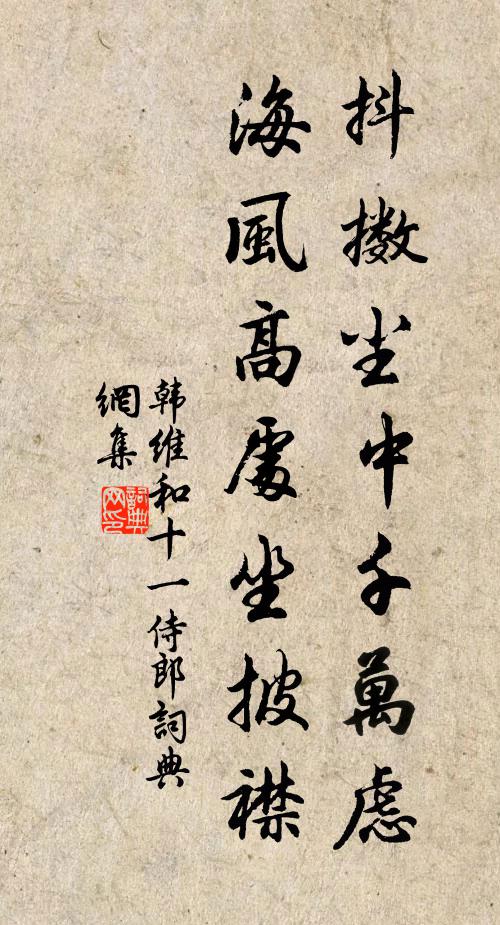 抖擻尘中千萬慮
海風高處坐披襟
韩維和十一侍郎詞典
網集
詞典
网印